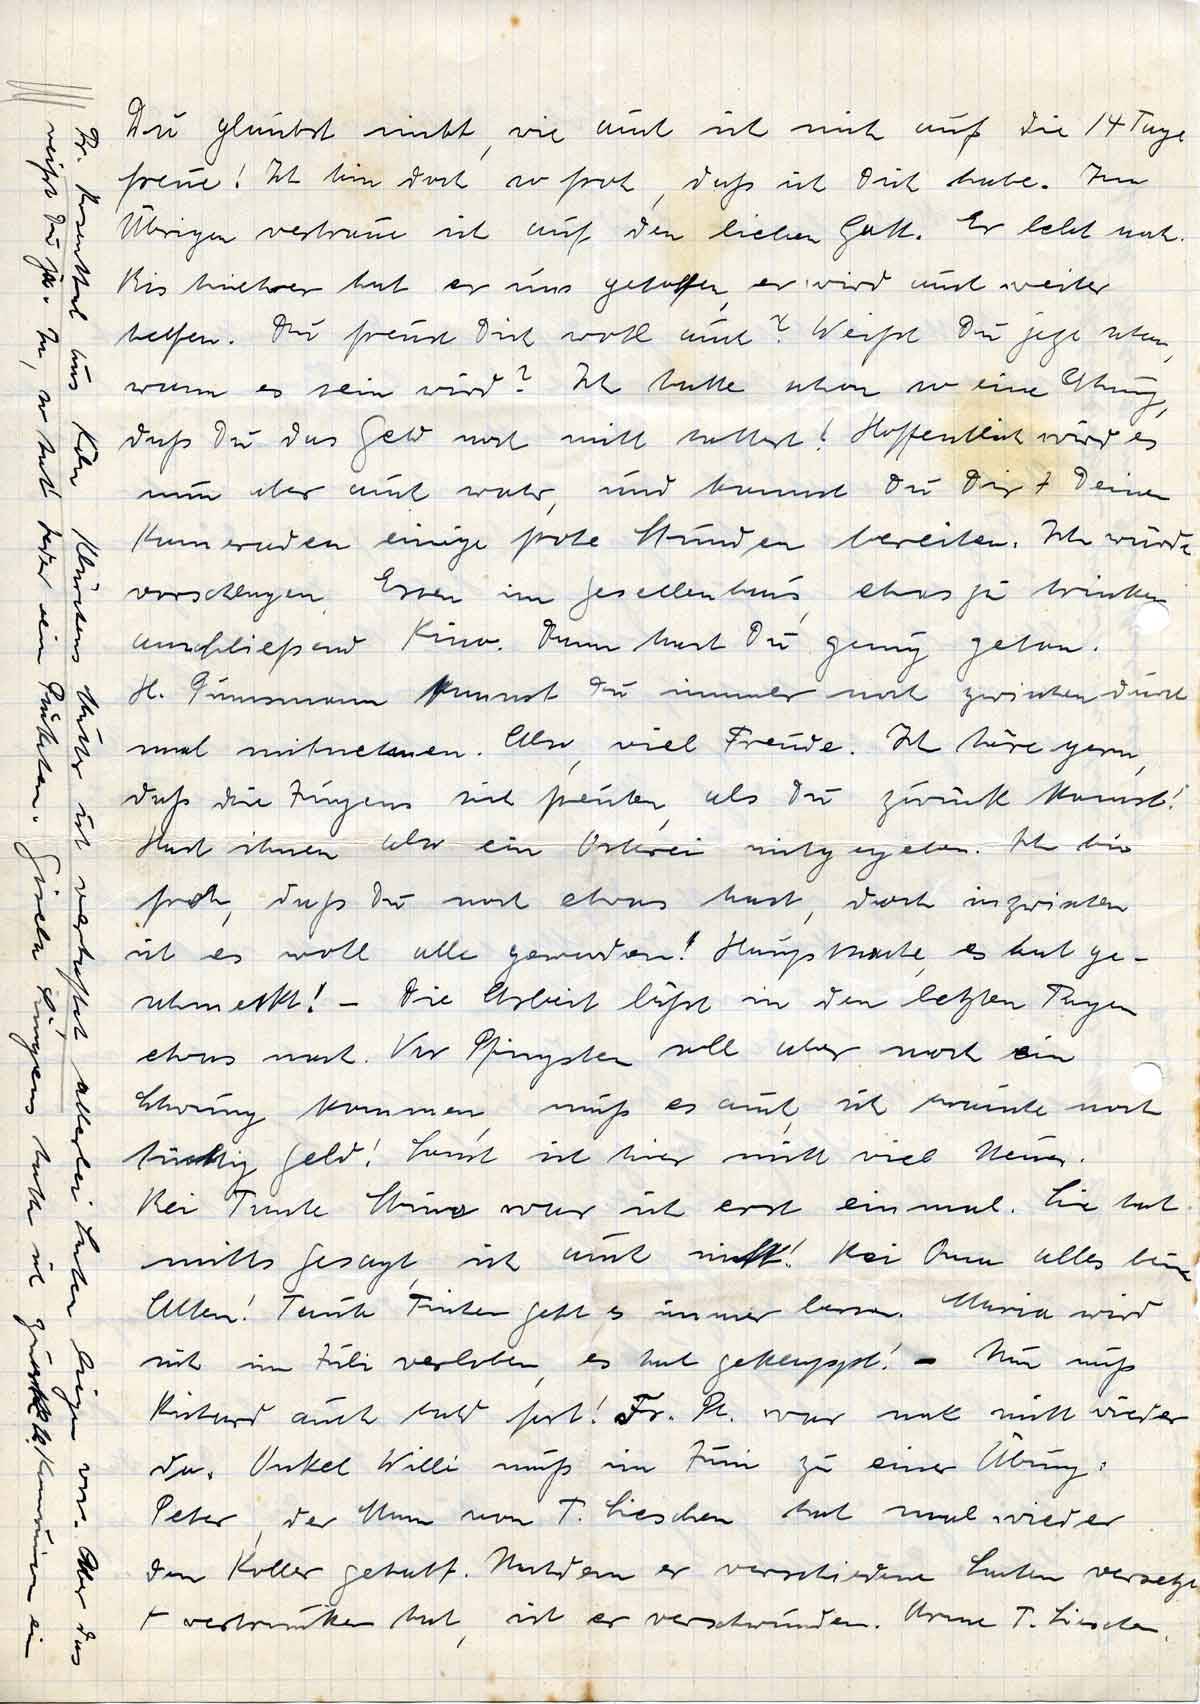 Du glaubst nicht, wie auch ich mich auf die 14 Tage
freue! Ich bin doch so froh, daß ich Dich habe. Im
Übrigen vertraue ich auf den lieben Gott. Er lebt noch.
Bis hierher hat er uns geholfen, er wird auch weiter
helfen. Du freust Dich wohl auch? Weißt Du jetzt schon,
wann es sein wird? Ich hatte schon so eine Ahnung,
daß Du das Geld noch nicht hattest! Hoffentlich wird es
nun aber auch wahr, und kannst Du Dir + Deinen
Kameraden einige frohe Stunden bereiten. Ich würde
vorschlagen, Essen im Gesellenhaus, etwas zu trinken
anschließend Kino. Dann hast Du genug getan.
H. kannst Du immer noch zwischen durch
mal mitnehmen. Also, viel Freude. Ich höre gern,
daß die Jungens sich freuten, als Du zurück kamst!
Hast ihnen also ein Osterei mitgegeben. Ich bin
froh, daß Du noch etwas hast, doch inzwischen
ist es wohl alle geworden! Hauptsache, es hat ge-
schmeckt! – Die Arbeit läßt in den letzten Tagen
etwas nach. Vor Pfingsten soll aber noch ein
Schwung kommen, muß es auch, ich brauche noch
tüchtig Geld! Sonst ist hier nicht viel Neues.
Bei Tante war ich erst einmal. Sie hat
nichts gesagt, ich auch nicht! Bei Oma alles beim
Alten! Tante geht es immer besser. Maria wird
sich im Juli verloben, es hat geklappt! – Nun muß
Richard auch bald fort! Fr. Pl. war noch nicht wieder
da. Onkel Willi muß im Juni zu einer Übung.
Peter, der Mann von T. Lieschen hat mal wieder
den Koller gehabt. Nachdem er verschiedene Sachen versetzt
+ vertrunken hat, ist er verschwunden. Arme T. Lieschen.
Dr. Rosenthal aus Köln Mutter ist verhaftet allerlei Sachen liegen vor. Aber das
weißt Du ja. Ja, so hat jeder sein Päckchen. Gisela Jüngens hatte ich Kommunion ein